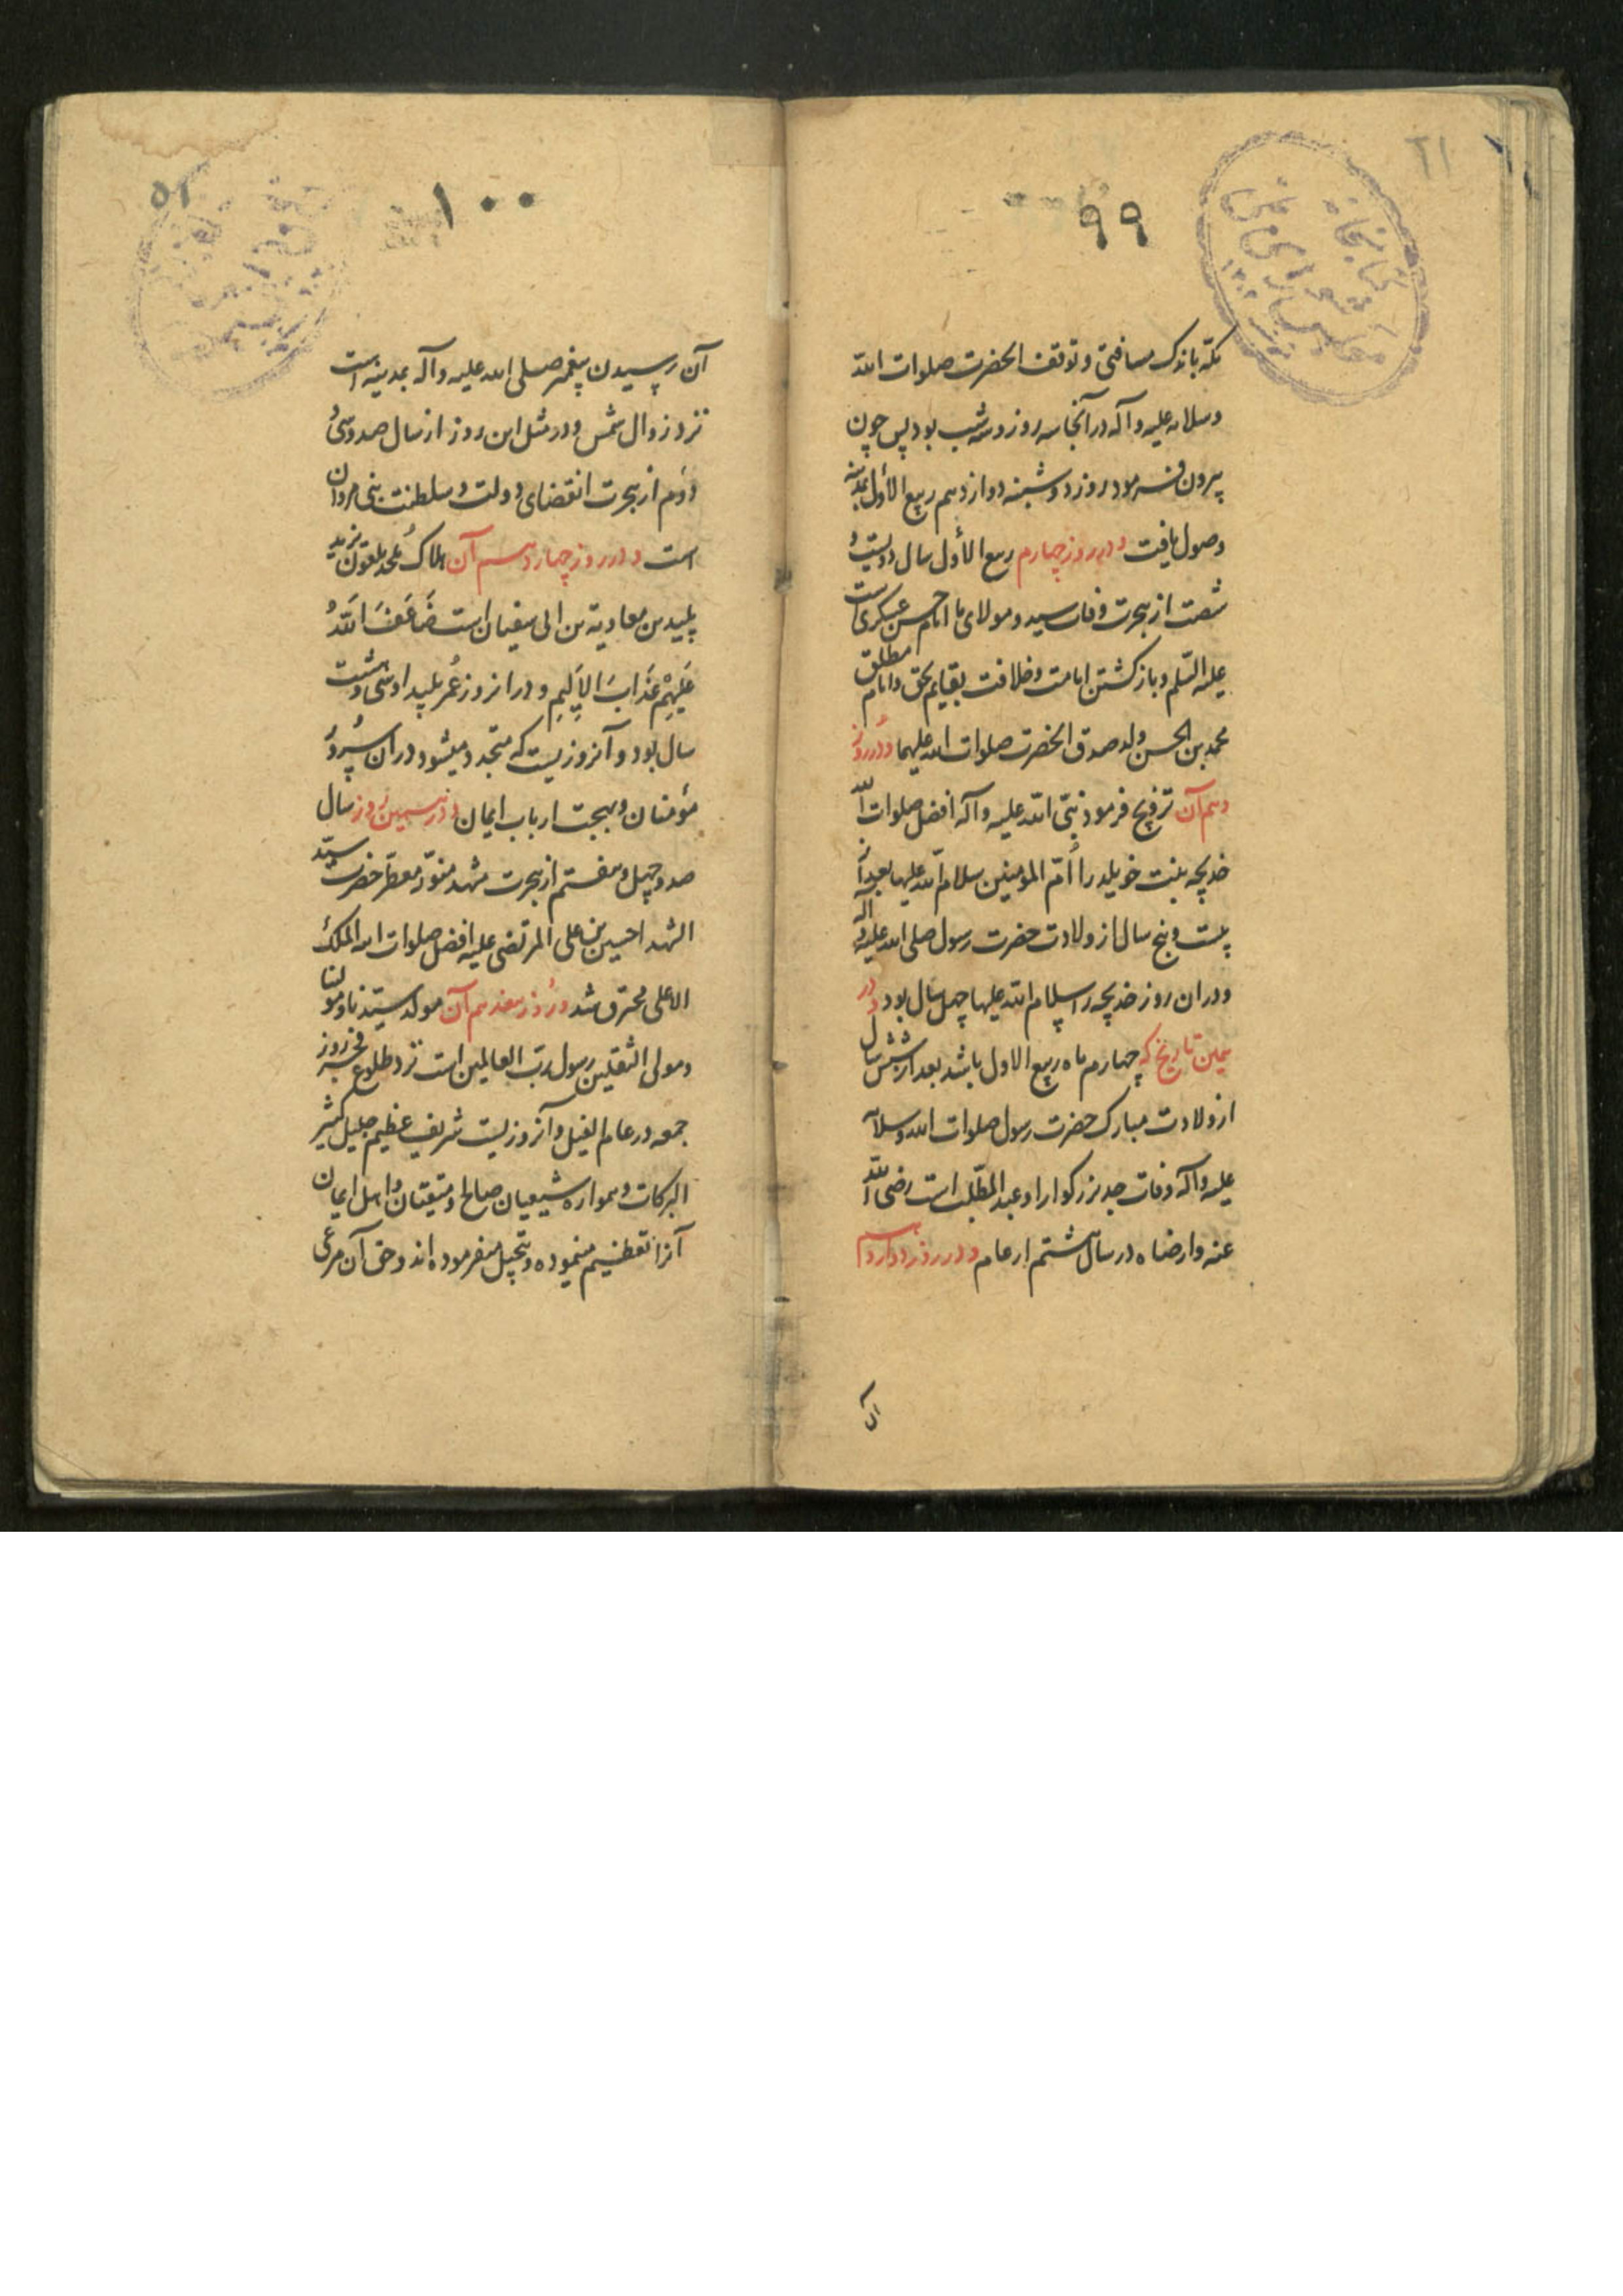 ۹۹
مکه باندک مسافتی و توقف انحضرت صلوات الله
و سلامه علیه و آله در آنجا سه روز و سه شب بود پس چون
بیرون فرمود روز دوشنبه دوازدهم ربیع الاول بمدینه
وصول یافت و در روز چهارم ربیع الاول سال دویست و
شصت از هجرت وفات سید و مولای ما امام حسن عسکری است
علیه السلم و بازگشتن امامت و خلافت بقایم بحق و امام مطلق
محمد بن الحسن ولد صدق انحضرت صلوات الله علیهما و در روز
دهم آن تزویج فرمود نبی الله علیه و آله افضل صلوات الله
خدیجه بنت خویلد را ام المومنین سلام الله علیها بعد از
بیست و پنج سال از ولادت حضرت رسول صلی الله علیه و اله
و در ان روز خدیجه را سلام الله علیها چهل سال بود و در
همین تاریخ که چهارم ماه ربیع الاول باشد بعد از شش سال
از ولادت مبارک حضرت رسول صلوات الله و سلامه
علیه و اله وفات جد بزرگوار او عبد المطلب است رضی الله
عنه وارضاه در سال هشتم از عام و در روز دوازدهم
آن
۱۰۰
آن رسیدن پیغمبر صلی الله علیه و آله بمدینه است
نزد زوال شمس و در مثل این روز از سال صد و سی و
دوم از هجرت انقضای دولت و سلطنت بنی مروان
است و در روز چهاردهم آن هلاک ملحد ملعون یزید
پلید بن معاویة بن ابی سفیان است ضَاعَفَ اللّٰهُ
عَلَیْهِمْ عَذَابَ الاَلِیمِ و در انروز عُمر پلید او سی و هشت
سال بود و آنروزیست که متجدد میشود در ان سُرور
مؤمنان و بهجت ارباب ایمان و در همین روز سال
صد و چهل و هفتم از هجرت مشهد منوّر معطّر حضرت سیّد
الشهدا حسین بن علی المرتضی علیه افضل صلوات الله الملک
الاعلی محترق شد و روز هفدهم آن مولد سیّدنا و مولنا
و مولی الثقلین رسول ربّ العالمین است نزد طلوع فجر روز
جمعه در عام الفیل و آنروزیست شریف عظیم جلیل کثیر
البرکات و همواره شیعیان صالح و متیقنان و اهل ایمان
آنرا تعظیم مینموده و تبجیل میفرموده اند و حق آن مرعی